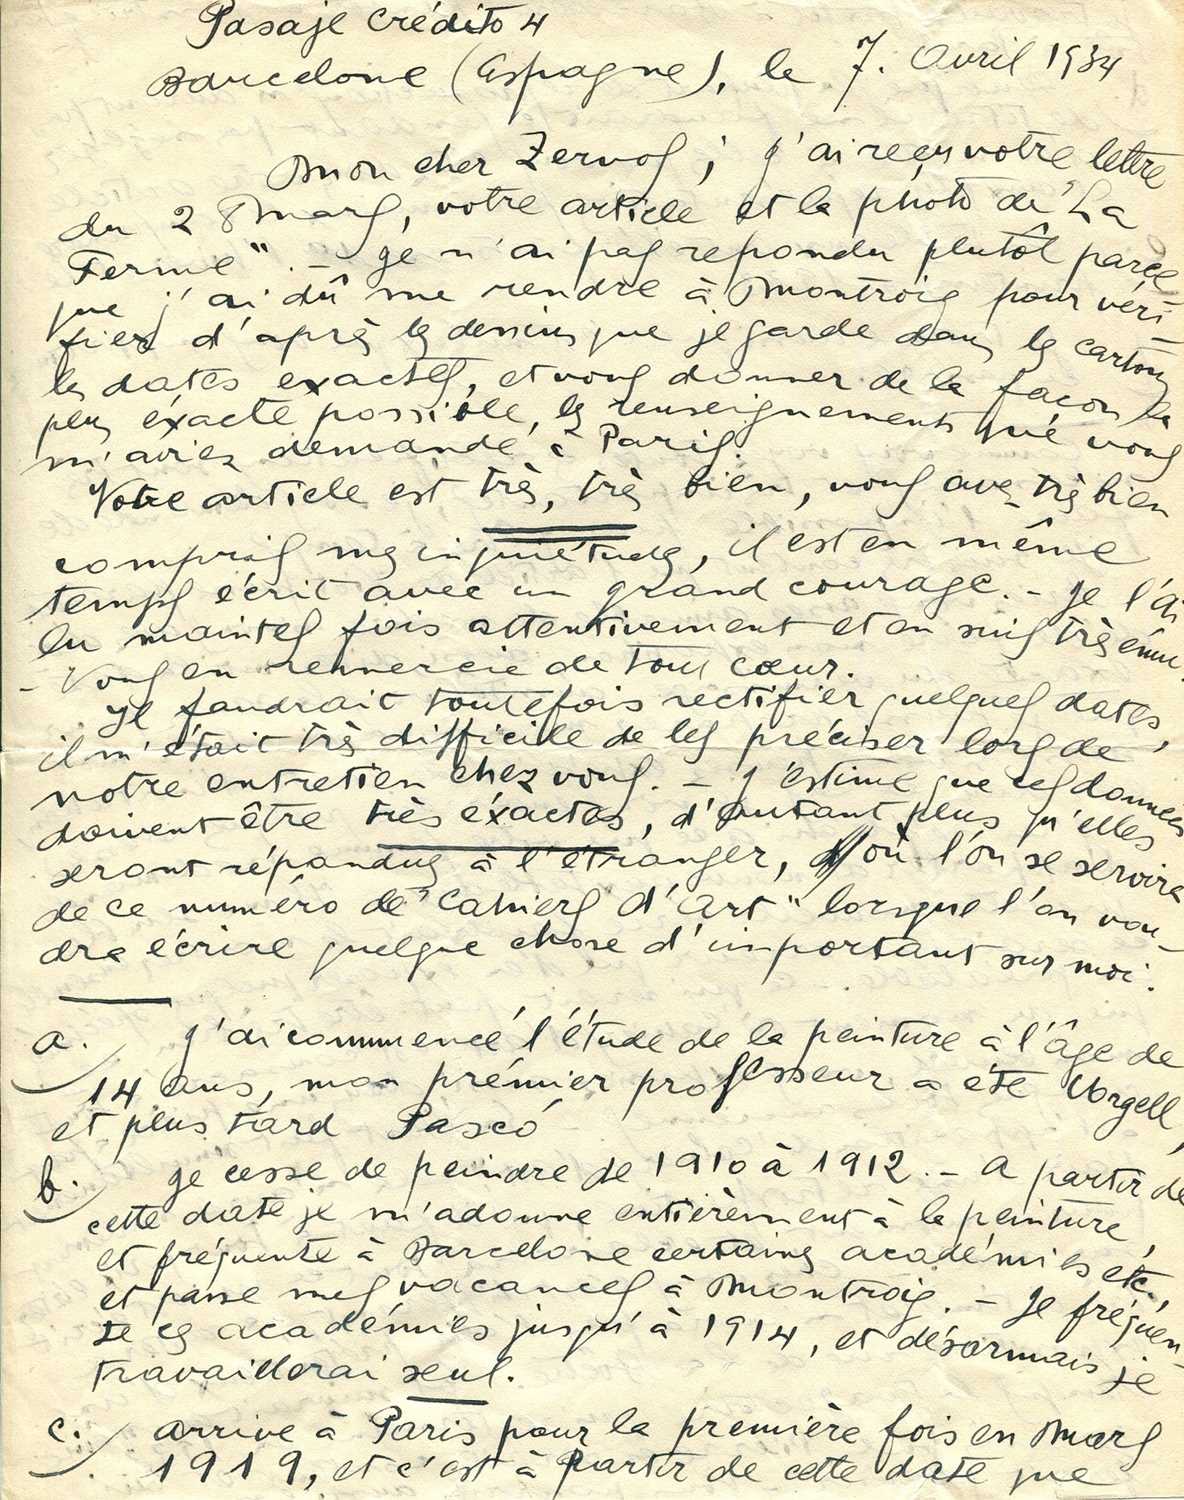 Pasaje Crédito 4
Barcelone (Espagne), le 7. Avril 1934
Mon cher Zervos ; j'ai reçu votre lettre
du 2 Mars, votre article et la photo de "La
Ferme". – Je n'ai pas repondu plutôt parce
que j'ai dû me rendre à Montroig pour véri-
fier d'après les dessins que je garde dans les cartons
les dates exactes, et vous donner de la façon la
plus éxacte possible, les renseignements que vous
m'aviez demandé à Paris.
Votre article est très, très bien, vous avez très bien
compris mes inquiétudes, il est en même
temps écrit avec un grand courage. – Je l'ai
lu maintes fois attentivement et en suis très ému.
– Vous en remercie de tout cœur.
Il faudrait toutefois rectifier quelques dates,
il m'était très difficile de les préciser lors de
notre entretien chez vous. – J'estime que ces données
doivent être très éxactes, d'autant plus qu'elles
seront répandues à l'étranger, où l'on se servira
de ce numéro de "Cahiers d'Art" lorsque l'on vou-
dra écrire quelque chose d'important sur moi.
a. J'ai commencé l'étude de la peinture à l'âge de
14 ans, mon prémier professeur a été Urgell,
et plus tard Pascó
b. Je cesse de peindre de 1910 à 1912. – A partir de
cette date je m'adonne entièrement à la peinture,
et fréquente à Barcelone certaines académies etc.
et passe mes vacances à Montroig. – Je fréquen-
te ces académies jusqu'à 1914, et désormais je
travaillerai seul.
c. Arrive à Paris pour la première fois en Mars
1919, et c'est à partir de cette date que